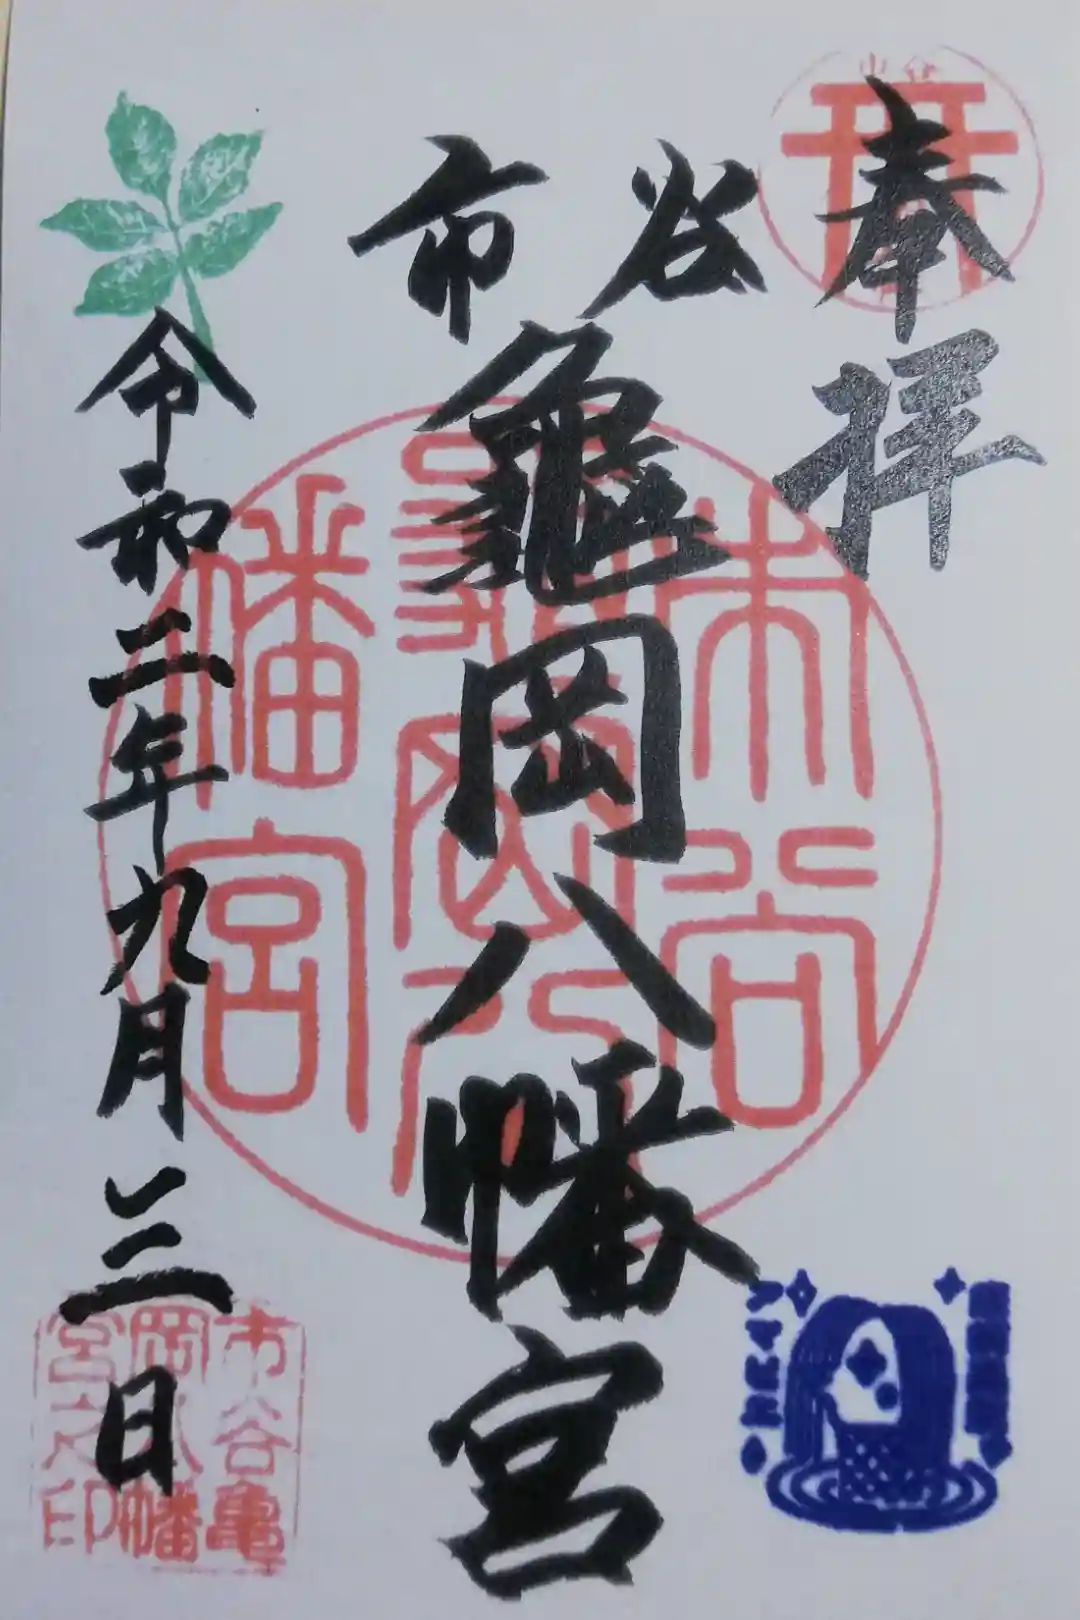 奉拝
市谷
龜岡八幡宮
令和二年九月三日
市谷亀岡八幡宮
市谷亀
岡八幡
宮之印